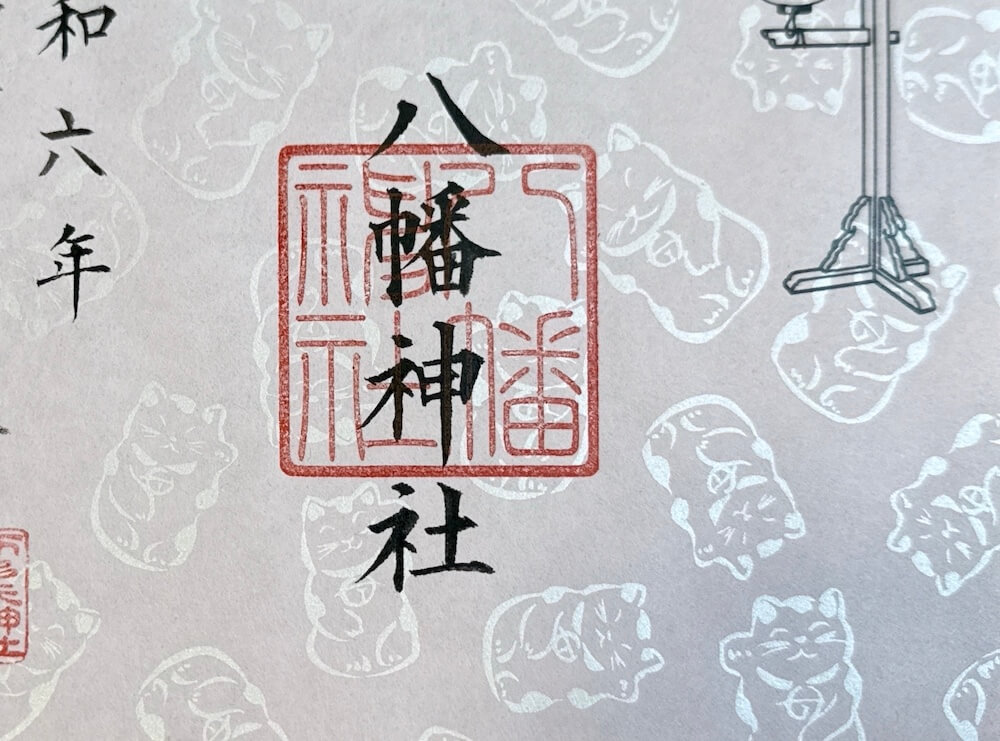 八幡神社
八幡神社
和六年